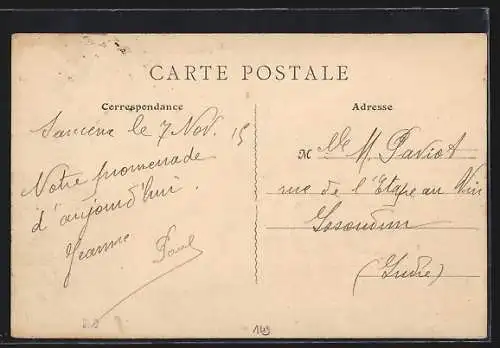 CARTE POSTALE
Correspondance
le 7 Nov. 15
Notre promenade
d'aujourd'hui.
Jeanne Paul
Adresse
M lle M. Paviot
rue de l'Etape au Vin
Issoudun
(Indre)
149